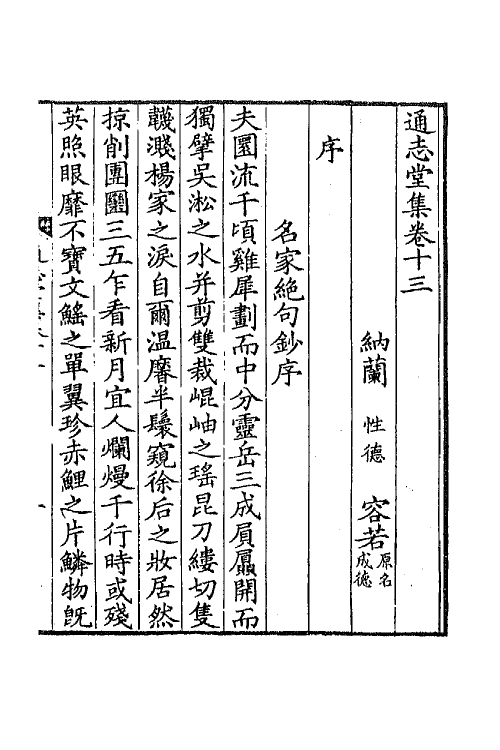 通志堂集卷十三
納蘭 性德 容若 原名成德
序
名家絶句鈔序
夫圜流千頃雞犀劃而中分靈岳三成屓屭開而
獨擘吳淞之水并剪雙裁崐岫之瑤昆刀縷切隻
韈濺楊家之淚自爾温黁半鬟窺徐后之妝居然
掠削團圞三五乍看新月宜人爛熳千行時或殘
英照眼靡不寶文鰩之單翼珍赤鯉之片鱗物旣